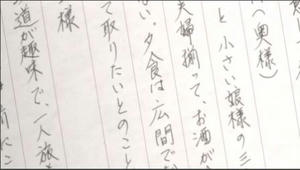 （奥様）
と小さい娘様の三
夫婦揃って、お酒が
ない。夕食は広間で
て取りたいとのこと
様
道が趣味で、一人旅